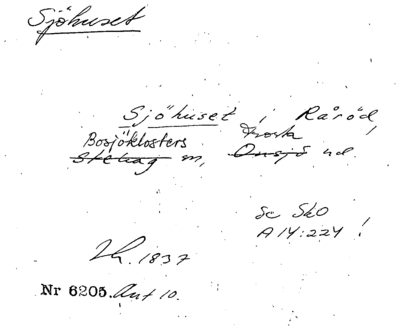 Sjöhuset
Sjöhuset i Råröd,
Bosjöklosters Frosta
Stehag m, Onsjö hd.
se SkO
A14:224!
1837
Nr 6205. Ant 10.